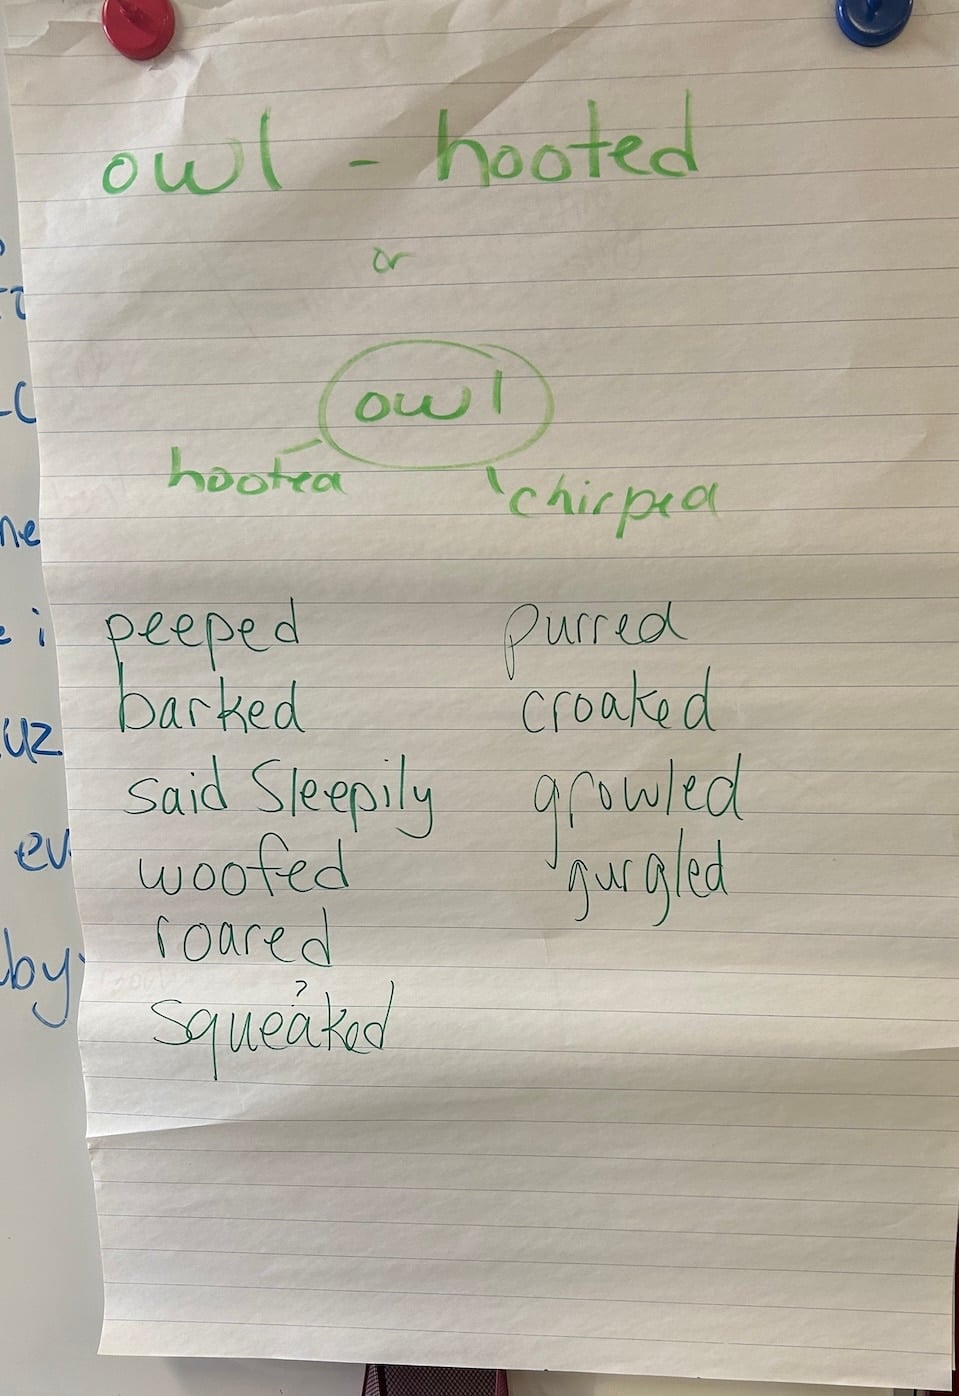 owl - hooted
or
owl
hooted chirped
peeped purred
barked croaked
said Sleepily growled
woofed gurgled
roared
?
squeaked
ne
e i
uz
ev
by